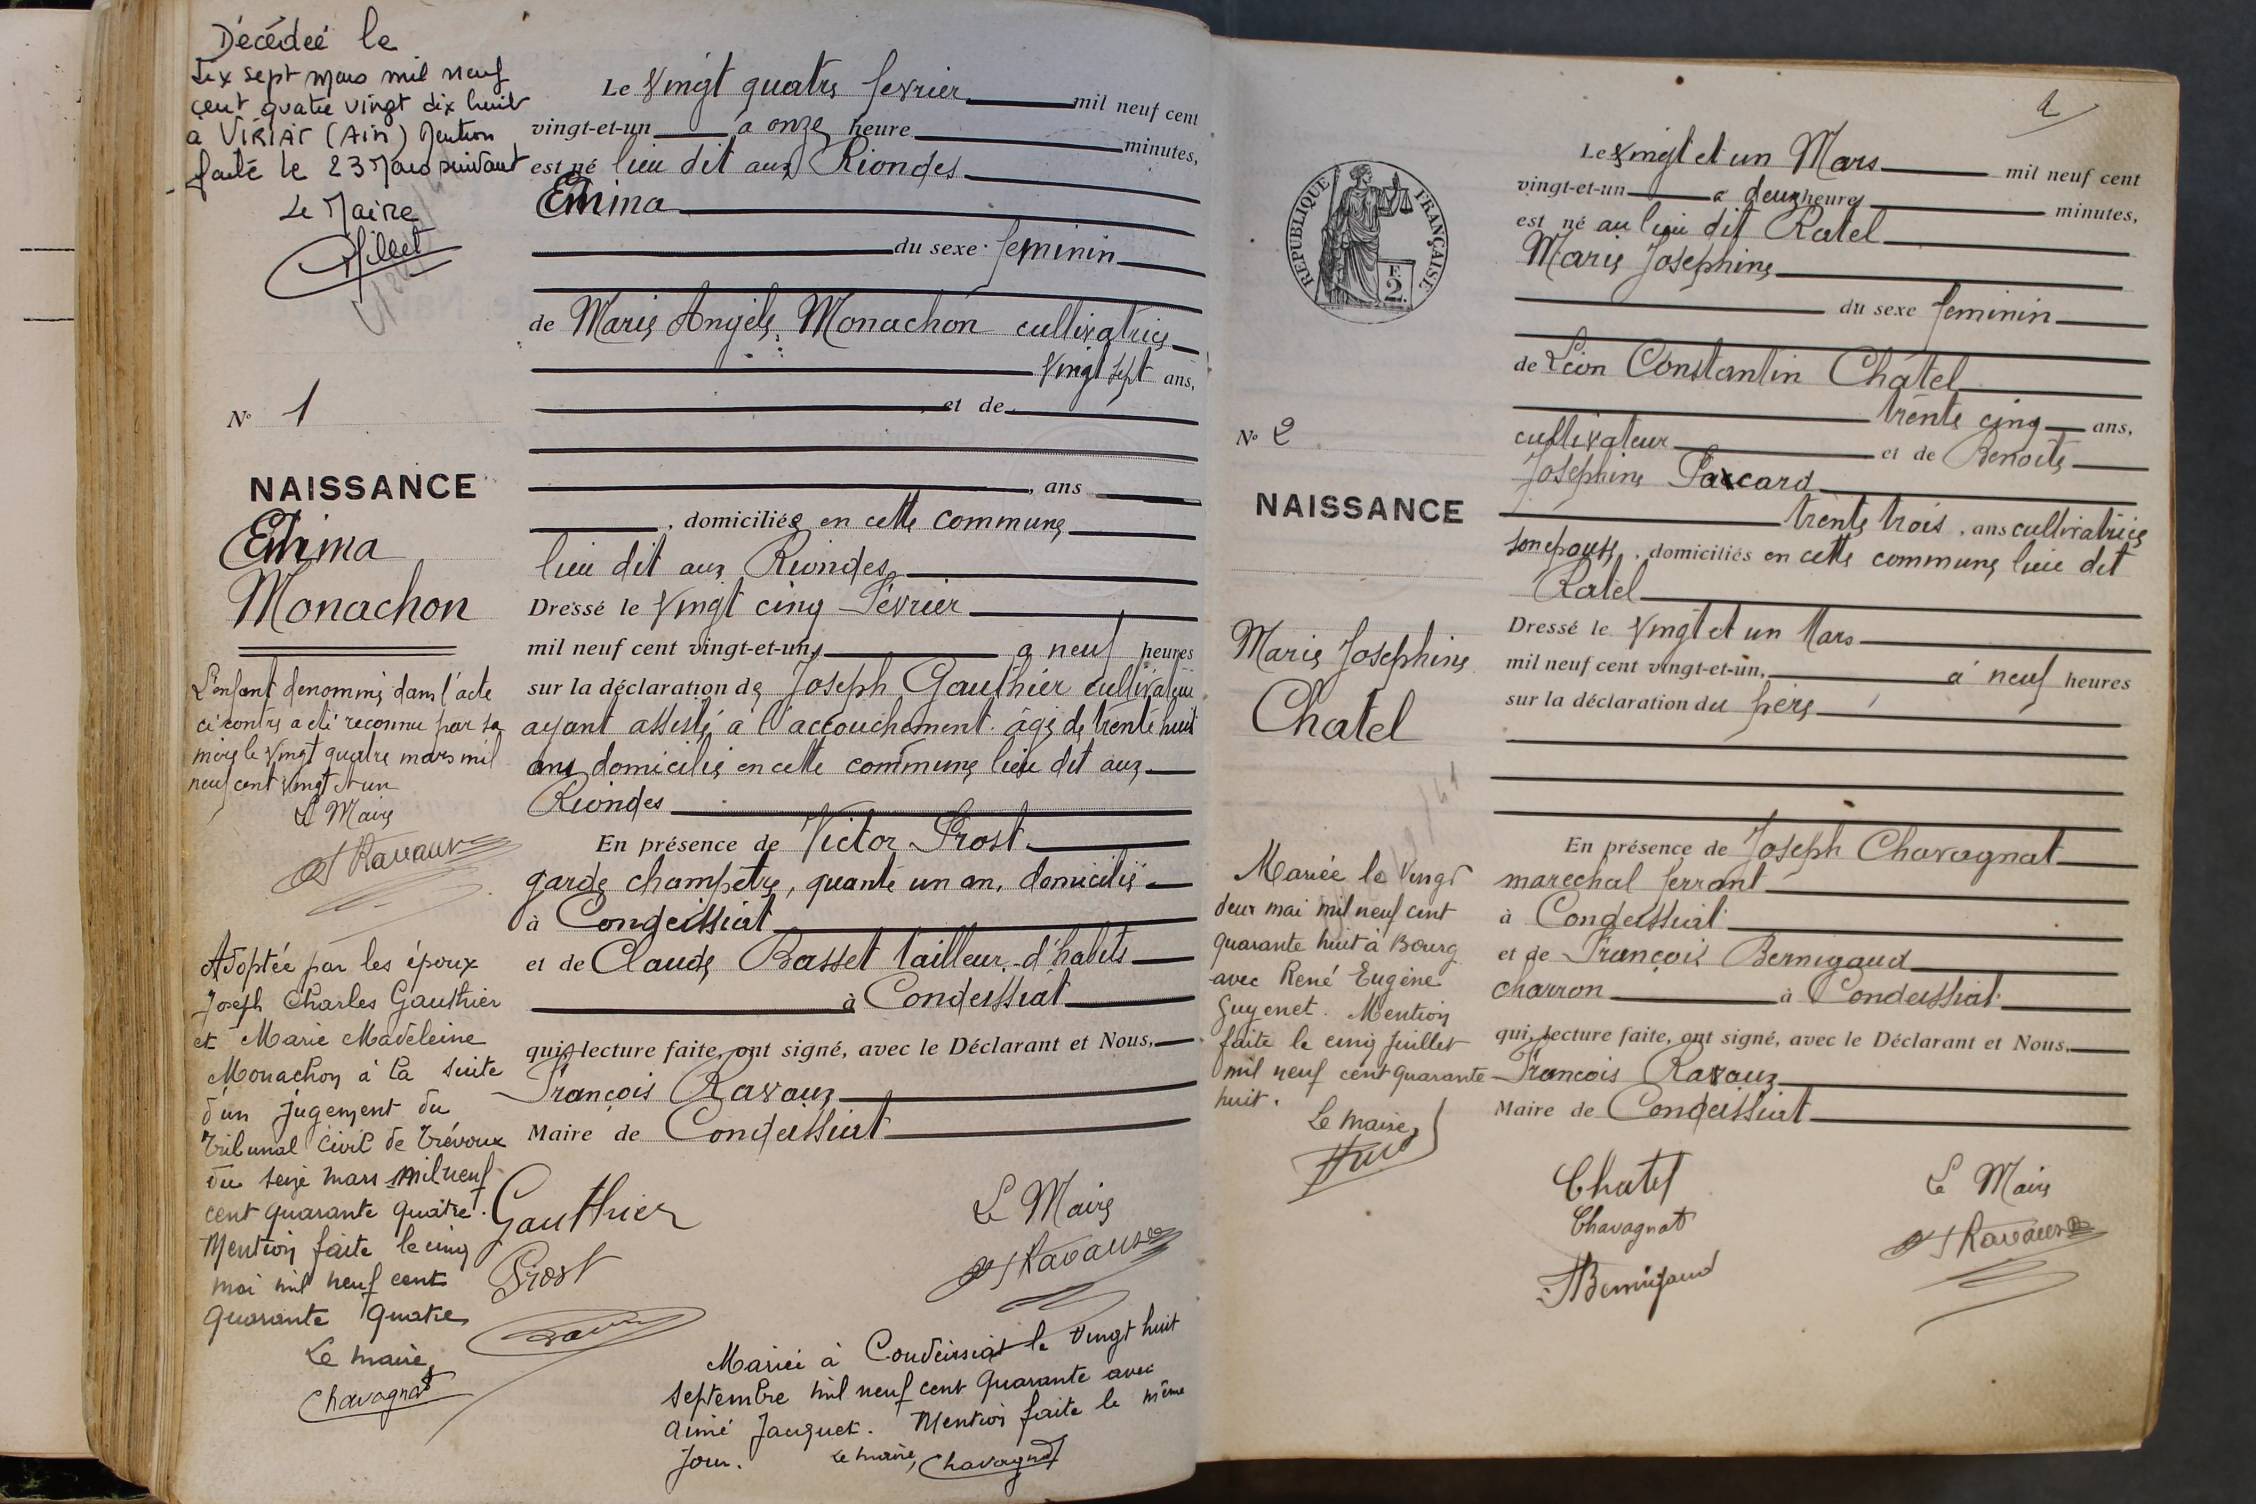 Décédeé le
dix sept mars mil neuf
cent quatre vingt dix huit
a VIRIAT (Ain) Mention
faite le 23 Mars suivant
Le Maire
Millet
N° 1
NAISSANCE
Emma
Monachon
L'enfant denommé dans l'acte
ci contre a été reconnu par sa
mère le vingt quatre mars mil
neuf cent vingt et un
Le Maire
F Ravaux
Adoptée par les époux
Joseph Charles Gauthier
et Marie Madeleine
Monachon à la suite
d'un jugement du
Tribunal Civil de Trévoux
du seize mars mil neuf
cent quarante quatre.
Mention faite le cinq
mai mil neuf cent
quarante quatre
Le maire,
Chavagnat
Le vingt quatre fevrier mil neuf cent
vingt-et-un à onze heure minutes,
est né lieu dit aux Riondes
Emma
du sexe feminin
de Marie Angèle Monachon cultivatrice
vingt sept ans,
et de
, ans
, domiciliée en cette commune
lieu dit aux Riondes
Dressé le vingt cinq Février
mil neuf cent vingt-et-un, a neuf heures
sur la déclaration de Joseph Gauthier cultivateur
ayant assisté a l'accouchement. âgé de trente huit
ans domicilié en cette commune lieu dit aux
Riondes
En présence de Victor Prost
garde champetre, quante un an, domicilié
à Condeissiat
et de Claude Basset tailleur d'habits
à Condeissiat
qui, lecture faite, ont signé, avec le Déclarant et Nous,
François Ravaux
Maire de Condeissiat
Gauthier
Prost
Le Maire
F Ravaux
Mariée à Condeissiat le vingt huit
septembre mil neuf cent quarante avec
Aimé Jacquet. Mention faite le même
jour. Le maire, Chavagnat
2
RÉPUBLIQUE FRANÇAISE
F.
2.
N° 2
NAISSANCE
Marie Josephine
Chatel
Mariée le vingt
deux mai mil neuf cent
quarante huit à Bourg
avec René Eugène
Guyenet. Mention
faite le cinq juillet
mil neuf cent quarante
huit.
Le maire,
Le vingt et un Mars mil neuf cent
vingt-et-un a deux heure minutes,
est né au lieu dit Ratel
Marie Josephine
du sexe feminin
de Léon Constantin Châtel
trente cinq ans,
cultivateur et de Benoite
Josephine Paccard
trente trois, ans cultivatrice
son epouse, domiciliés en cette commune lieu dit
Ratel
Dressé le vingt et un Mars
mil neuf cent vingt-et-un, à neuf heures
sur la déclaration du père
En présence de Joseph Chavagnat
marechal ferrant
à Condeissiat
et de François Bernigaud
charron à Condeissiat
qui, lecture faite, ont signé, avec le Déclarant et Nous,
François Ravaux
Maire de Condeissiat
Chatel
Chavagnat
F Bernigaud
Le Maire
F Ravaux